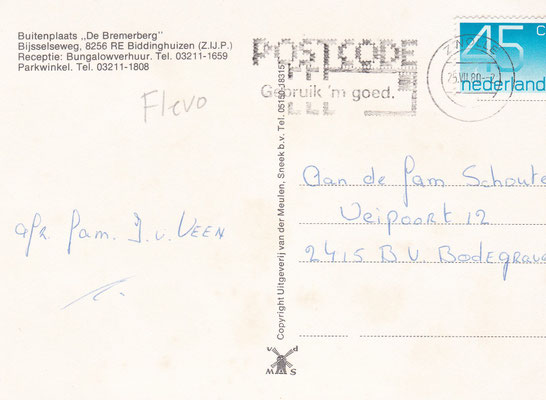 Buitenplaats „De Bremerberg"
Bijsselseweg, 8256 RE Biddinghuizen (Z.IJ.P.)
Receptie: Bungalowverhuur. Tel. 03211-1659
Parkwinkel. Tel. 03211-1808
Flevo
POSTCODE
Gebruik 'm goed.
45 c
nederland
Aan de fam Schoute
Veipoort 12
2415 B.V. Bodegrave
afz. fam. J. v. VEEN
Copyright Uitgeverij van der Meulen, Sneek b.v. Tel. 05150-18315
v d
M S